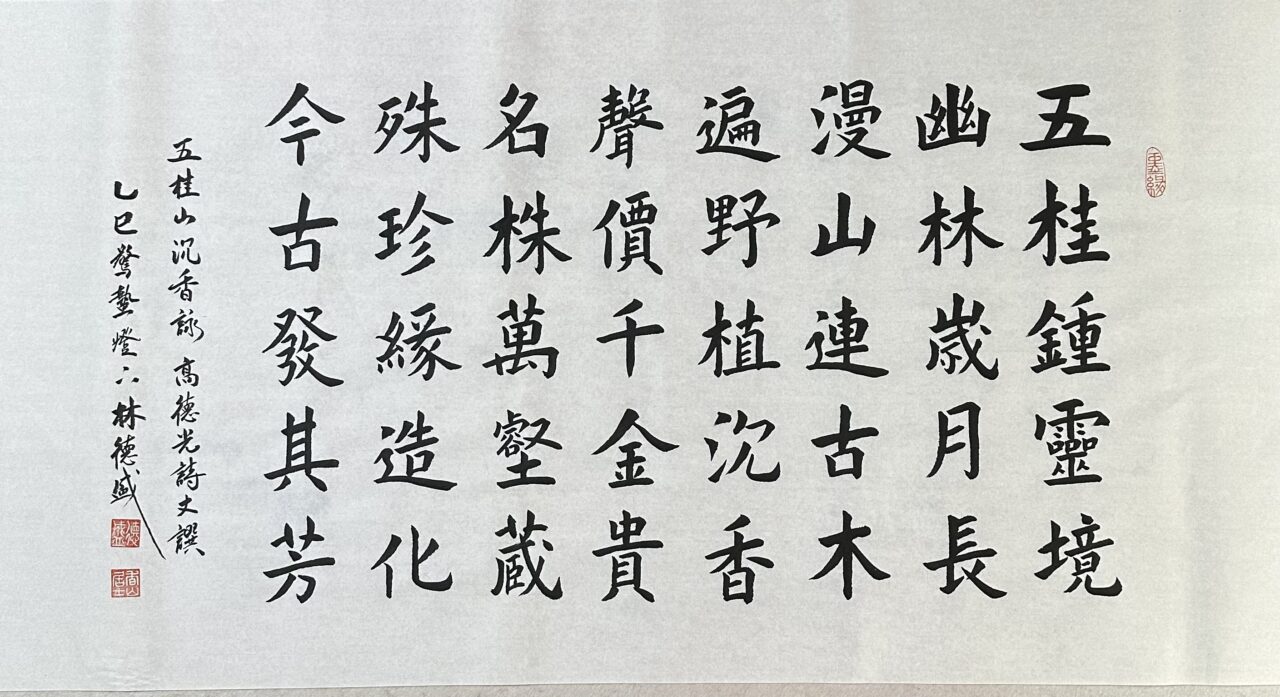 五桂鍾靈境
幽林歲月長
漫山連古木
遍野植沉香
聲價千金貴
名株萬壑蔵
殊珍緣造化
今古發其芳
五桂山沉香詠 高德光詩丈譔
乙巳驚蟄燈下林德盛